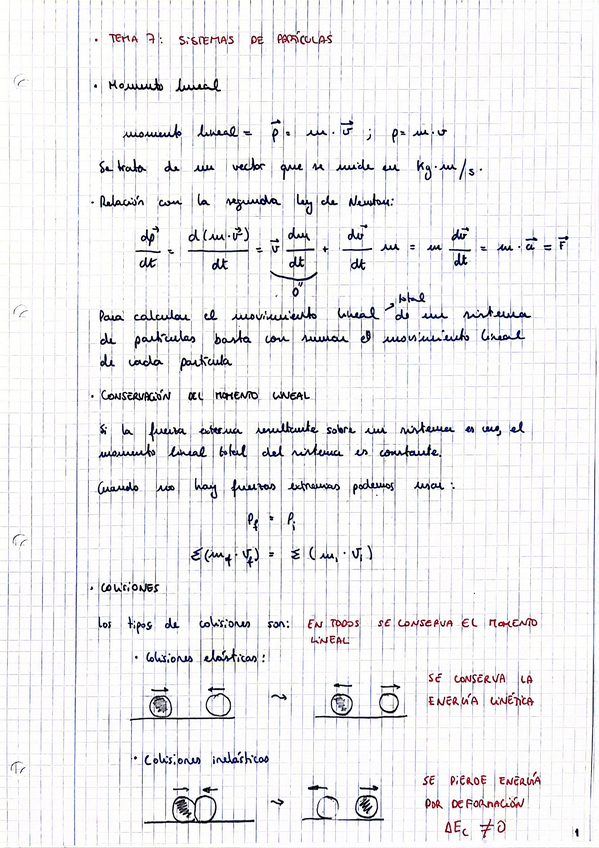 · TEMA 7: SISTEMAS DE PARTÍCULAS
· Momento lineal
momento lineal = p⃗ = m · v⃗ ; p = m · v
Se trata de un vector que se mide en Kg·m/s.
· Relación con la segunda ley de Newton:
dp⃗/dt = d(m·v⃗)/dt = v⃗ dm/dt + dv⃗/dt m = m dv⃗/dt = m · a⃗ = F⃗
0
Para calcular el movimiento lineal total de un sistema
de partículas basta con sumar el movimiento lineal
de cada partícula
· CONSERVACIÓN DEL MOMENTO LINEAL
Si la fuerza externa resultante sobre un sistema es cero, el
momento lineal total del sistema es constante.
Cuando no hay fuerzas extremas podemos usar:
P_f = P_i
Σ(m_f · v_f) = Σ(m_i · v_i)
· COLISIONES
Los tipos de colisiones son: EN TODOS SE CONSERVA EL MOMENTO
LINEAL
· Colisiones elásticas:
SE CONSERVA LA
ENERGÍA CINÉTICA
· Colisiones inelásticas
SE PIERDE ENERGÍA
POR DEFORMACIÓN
ΔE_c ≠ 0
1